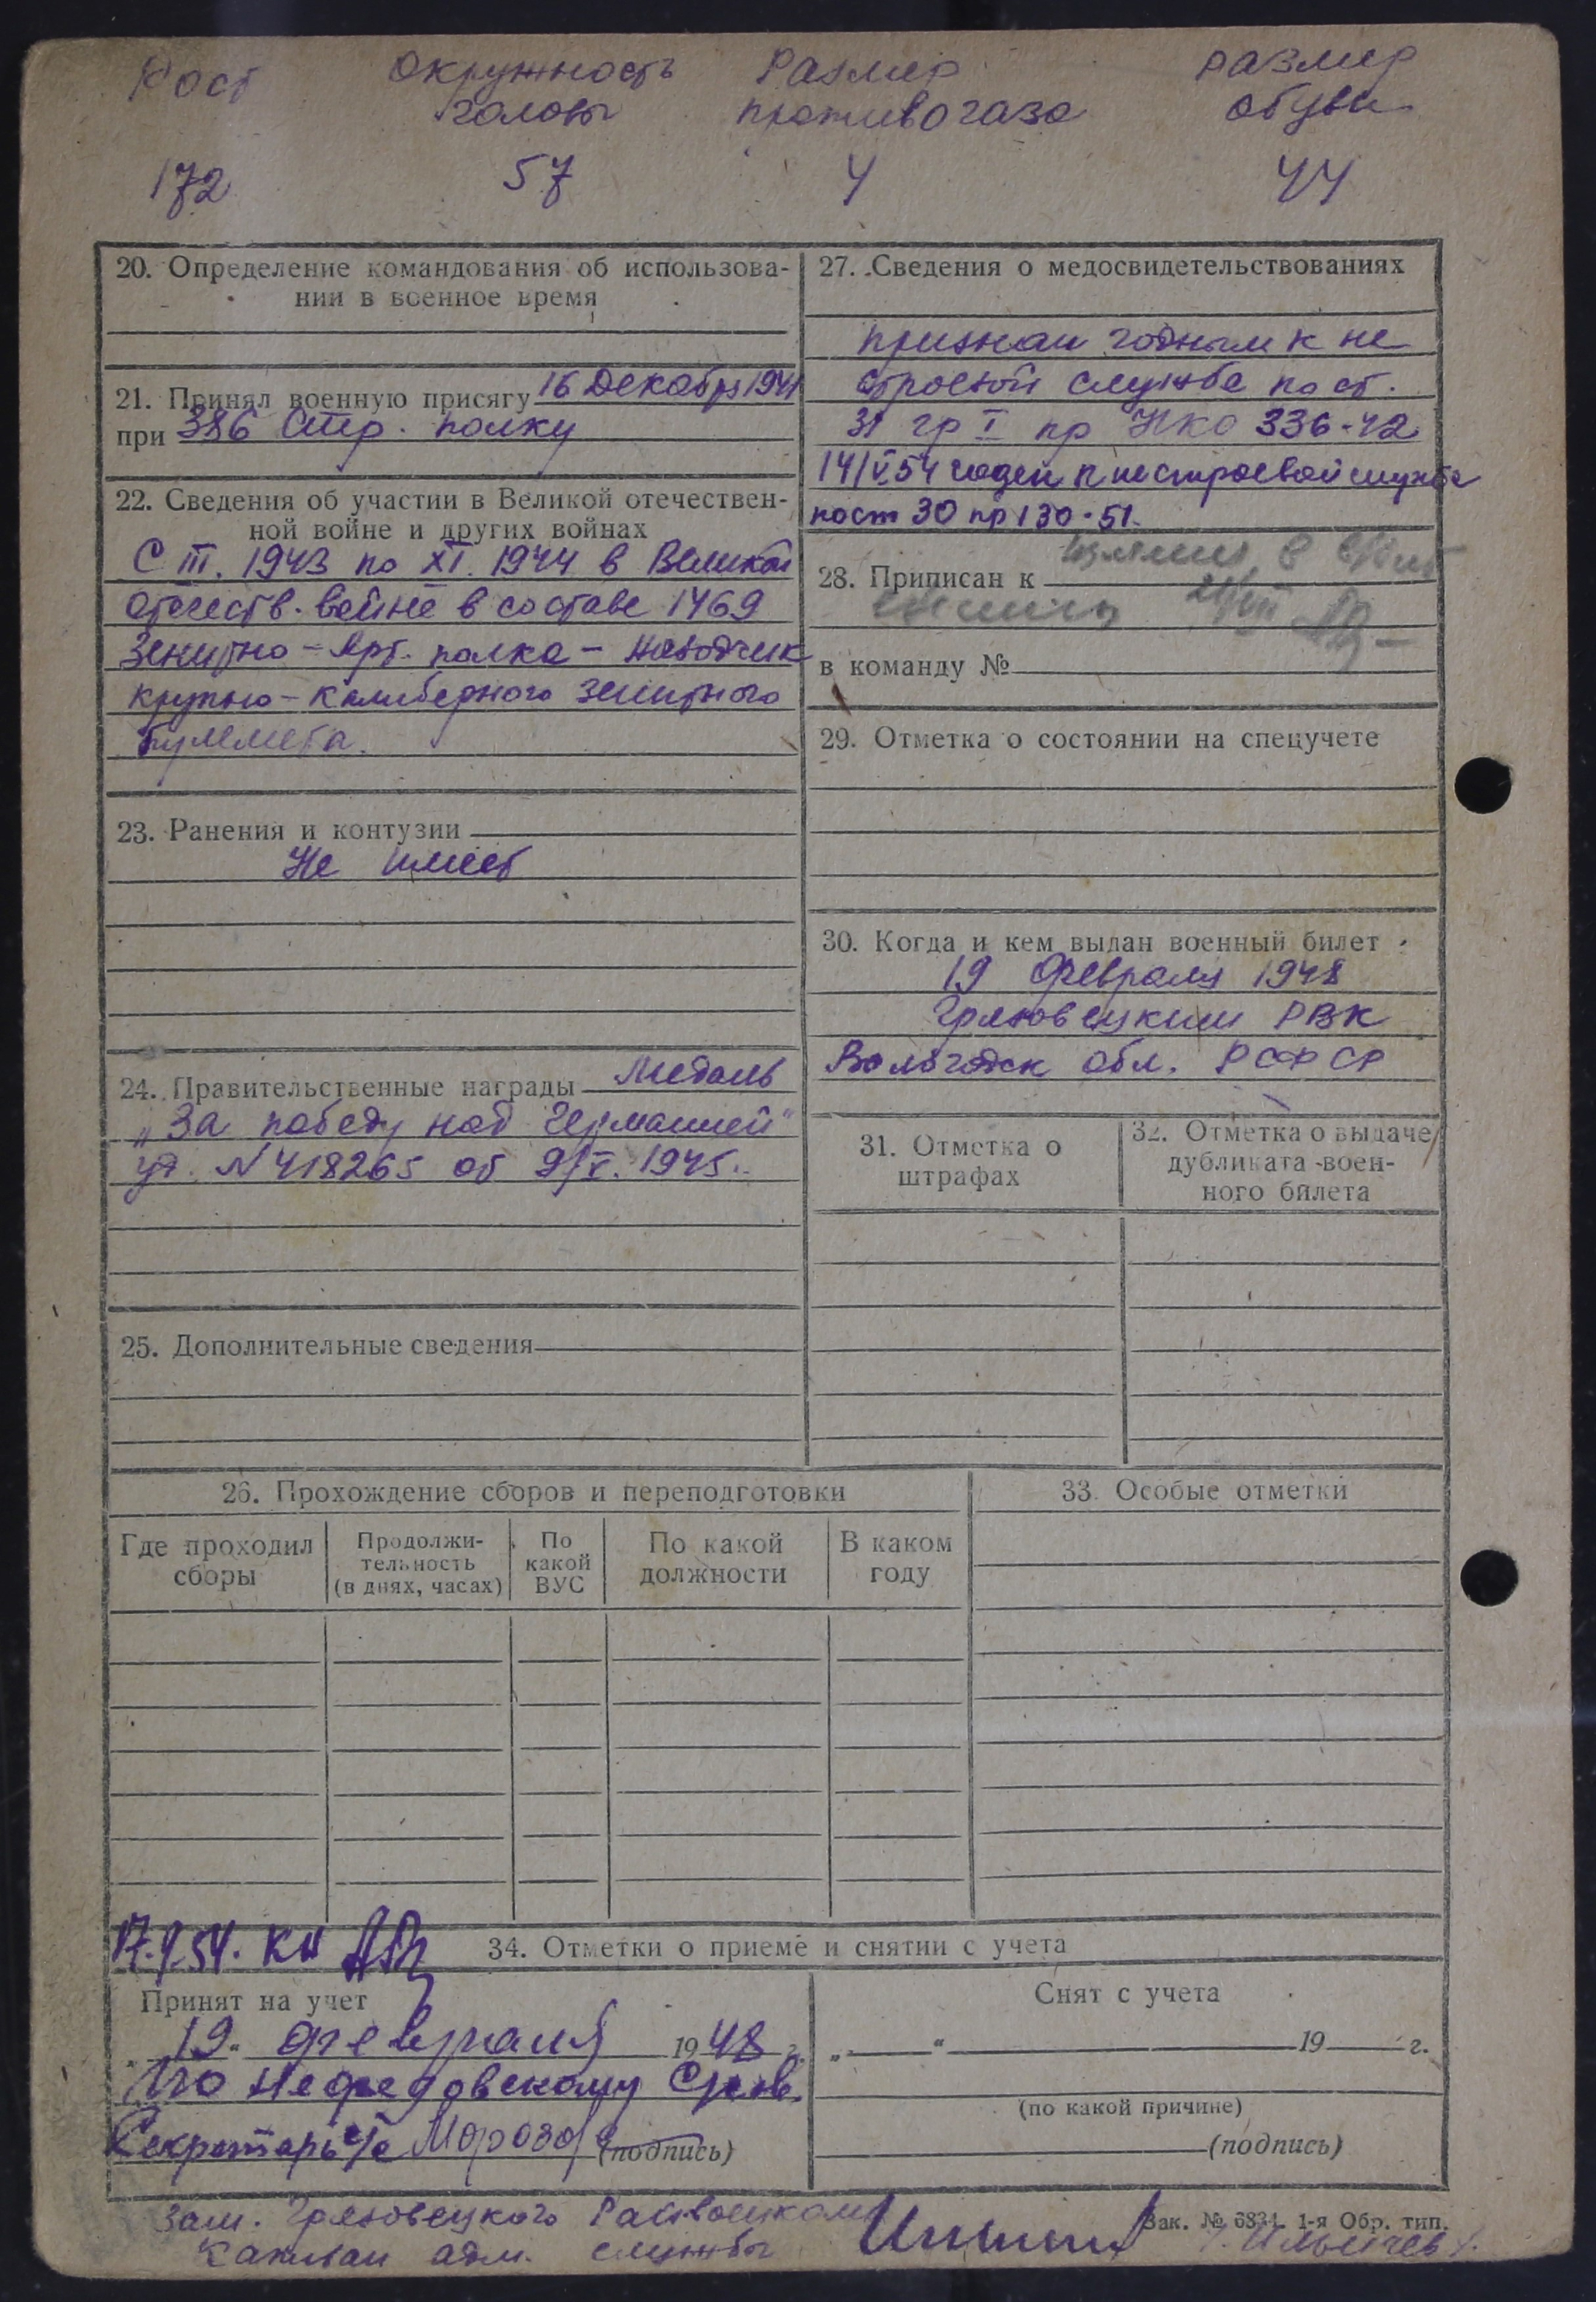 Рост Окружность Размер размер
головы противогаза обуви
172 57 4 44
20. Определение командования об использова-
нии в военное время
21. Принял военную присягу 16 Декабря 1941
при 386 Стр. полку
22. Сведения об участии в Великой отечествен-
ной войне и других войнах
С III. 1943 по XI. 1944 в Великой
отечеств. войне в составе 1469
Зенитно-Арт. полка - наводчик
крупно-калиберного зенитного
пулемета.
23. Ранения и контузии
Не имеет
24. Правительственные награды Медаль
„За победу над Германией"
уд. N 418265 от 9/V. 1945.
25. Дополнительные сведения
27. Сведения о медосвидетельствованиях
признан годным к не
строевой службе по ст.
31 гр I пр НКО 336-42
14/V 54 годен к нестроевой службе
по ст 30 пр 130-51.
28. Приписан к
в команду №
29. Отметка о состоянии на спецучете
30. Когда и кем выдан военный билет
19 февраля 1948
Грязовецким РВК
Вологодск обл. РСФСР
31. Отметка о
штрафах
32. Отметка о выдаче
дубликата воен-
ного билета
26. Прохождение сборов и переподготовки
Где проходил
сборы
Продолжи-
тельность
(в днях, часах)
По
какой
ВУС
По какой
должности
В каком
году
33. Особые отметки
34. Отметки о приеме и снятии с учета
Принят на учет
„19" февраля 1948 г.
По Нефедовскому
Секретарь с/с Морозов (подпись)
Снят с учета
„ " 19 г.
(по какой причине)
(подпись)
Зам. Грязовецкого Райвоенкома
капитан адм. службы
Зак. № 6834. 1-я Обр. тип.